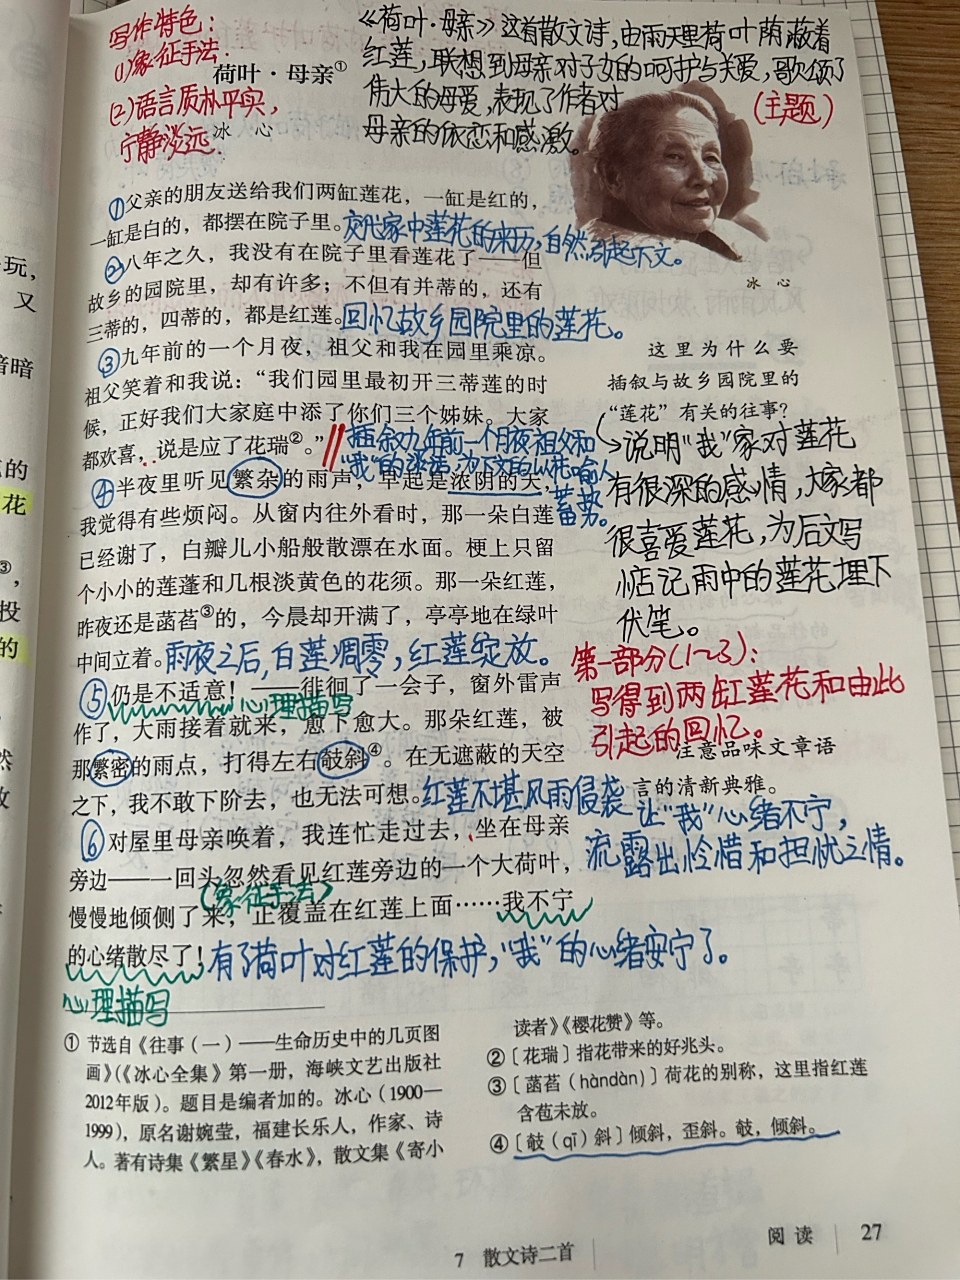 写作特色：
(1)象征手法.
(2)语言质朴平实，
宁静淡远.
《荷叶·母亲》这首散文诗，由雨天里荷叶荫蔽着
红莲，联想到母亲对子女的呵护与关爱，歌颂了
伟大的母爱，表现了作者对
母亲的依恋和感激。
(主题)
荷叶·母亲①
冰 心
①父亲的朋友送给我们两缸莲花，一缸是红的，
一缸是白的，都摆在院子里。交代家中莲花的来历，自然引起下文。
②八年之久，我没有在院子里看莲花了——但
故乡的园院里，却有许多；不但有并蒂的，还有
三蒂的，四蒂的，都是红莲。回忆故乡园院里的莲花。
③九年前的一个月夜，祖父和我在园里乘凉。
祖父笑着和我说：“我们园里最初开三蒂莲的时
候，正好我们大家庭中添了你们三个姊妹。大家
都欢喜，说是应了花瑞②。”
插叙九年前一个月夜祖父和
“我”的谈话，为下文的以花喻人
蓄势。
④半夜里听见繁杂的雨声，早起是浓阴的天，
我觉得有些烦闷。从窗内往外看时，那一朵白莲
已经谢了，白瓣儿小船般散漂在水面。梗上只留
个小小的莲蓬和几根淡黄色的花须。那一朵红莲，
昨夜还是菡萏③的，今晨却开满了，亭亭地在绿叶
中间立着。雨夜之后，白莲凋零，红莲绽放。
⑤仍是不适意！——徘徊了一会子，窗外雷声
心理描写
作了，大雨接着就来，愈下愈大。那朵红莲，被
那繁密的雨点，打得左右攲斜④。在无遮蔽的天空
之下，我不敢下阶去，也无法可想。红莲不堪风雨侵袭让“我”心绪不宁，
流露出怜惜和担忧之情。
⑥对屋里母亲唤着，我连忙走过去，坐在母亲
旁边——一回头忽然看见红莲旁边的一个大荷叶，
(象征手法)
慢慢地倾侧了来，正覆盖在红莲上面……我不宁
的心绪散尽了！有了荷叶对红莲的保护，“我”的心绪安宁了。
心理描写
冰 心
这里为什么要
插叙与故乡园院里的
“莲花”有关的往事？
说明“我”家对莲花
有很深的感情，大家都
很喜爱莲花，为后文写
惦记雨中的莲花埋下
伏笔。
第一部分(1～3)：
写得到两缸莲花和由此
引起的回忆。
注意品味文章语
言的清新典雅。
① 节选自《往事（一）——生命历史中的几页图
画》(《冰心全集》第一册，海峡文艺出版社
2012年版)。题目是编者加的。冰心（1900—
1999），原名谢婉莹，福建长乐人，作家、诗
人。著有诗集《繁星》《春水》，散文集《寄小
读者》《樱花赞》等。
②〔花瑞〕指花带来的好兆头。
③〔菡萏（hàndàn）〕荷花的别称，这里指红莲
含苞未放。
④〔攲（qī）斜〕倾斜，歪斜。攲，倾斜。
7 散文诗二首
阅读 27
玩，
又
暗暗
的
花
③，
投
的
然